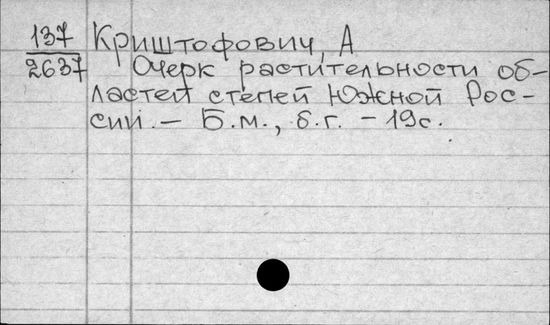 137 Криштофович, А
2637 Очерк растительности об-
ластей степей Южной Рос-
сии. – Б.м., б.г. – 19с.